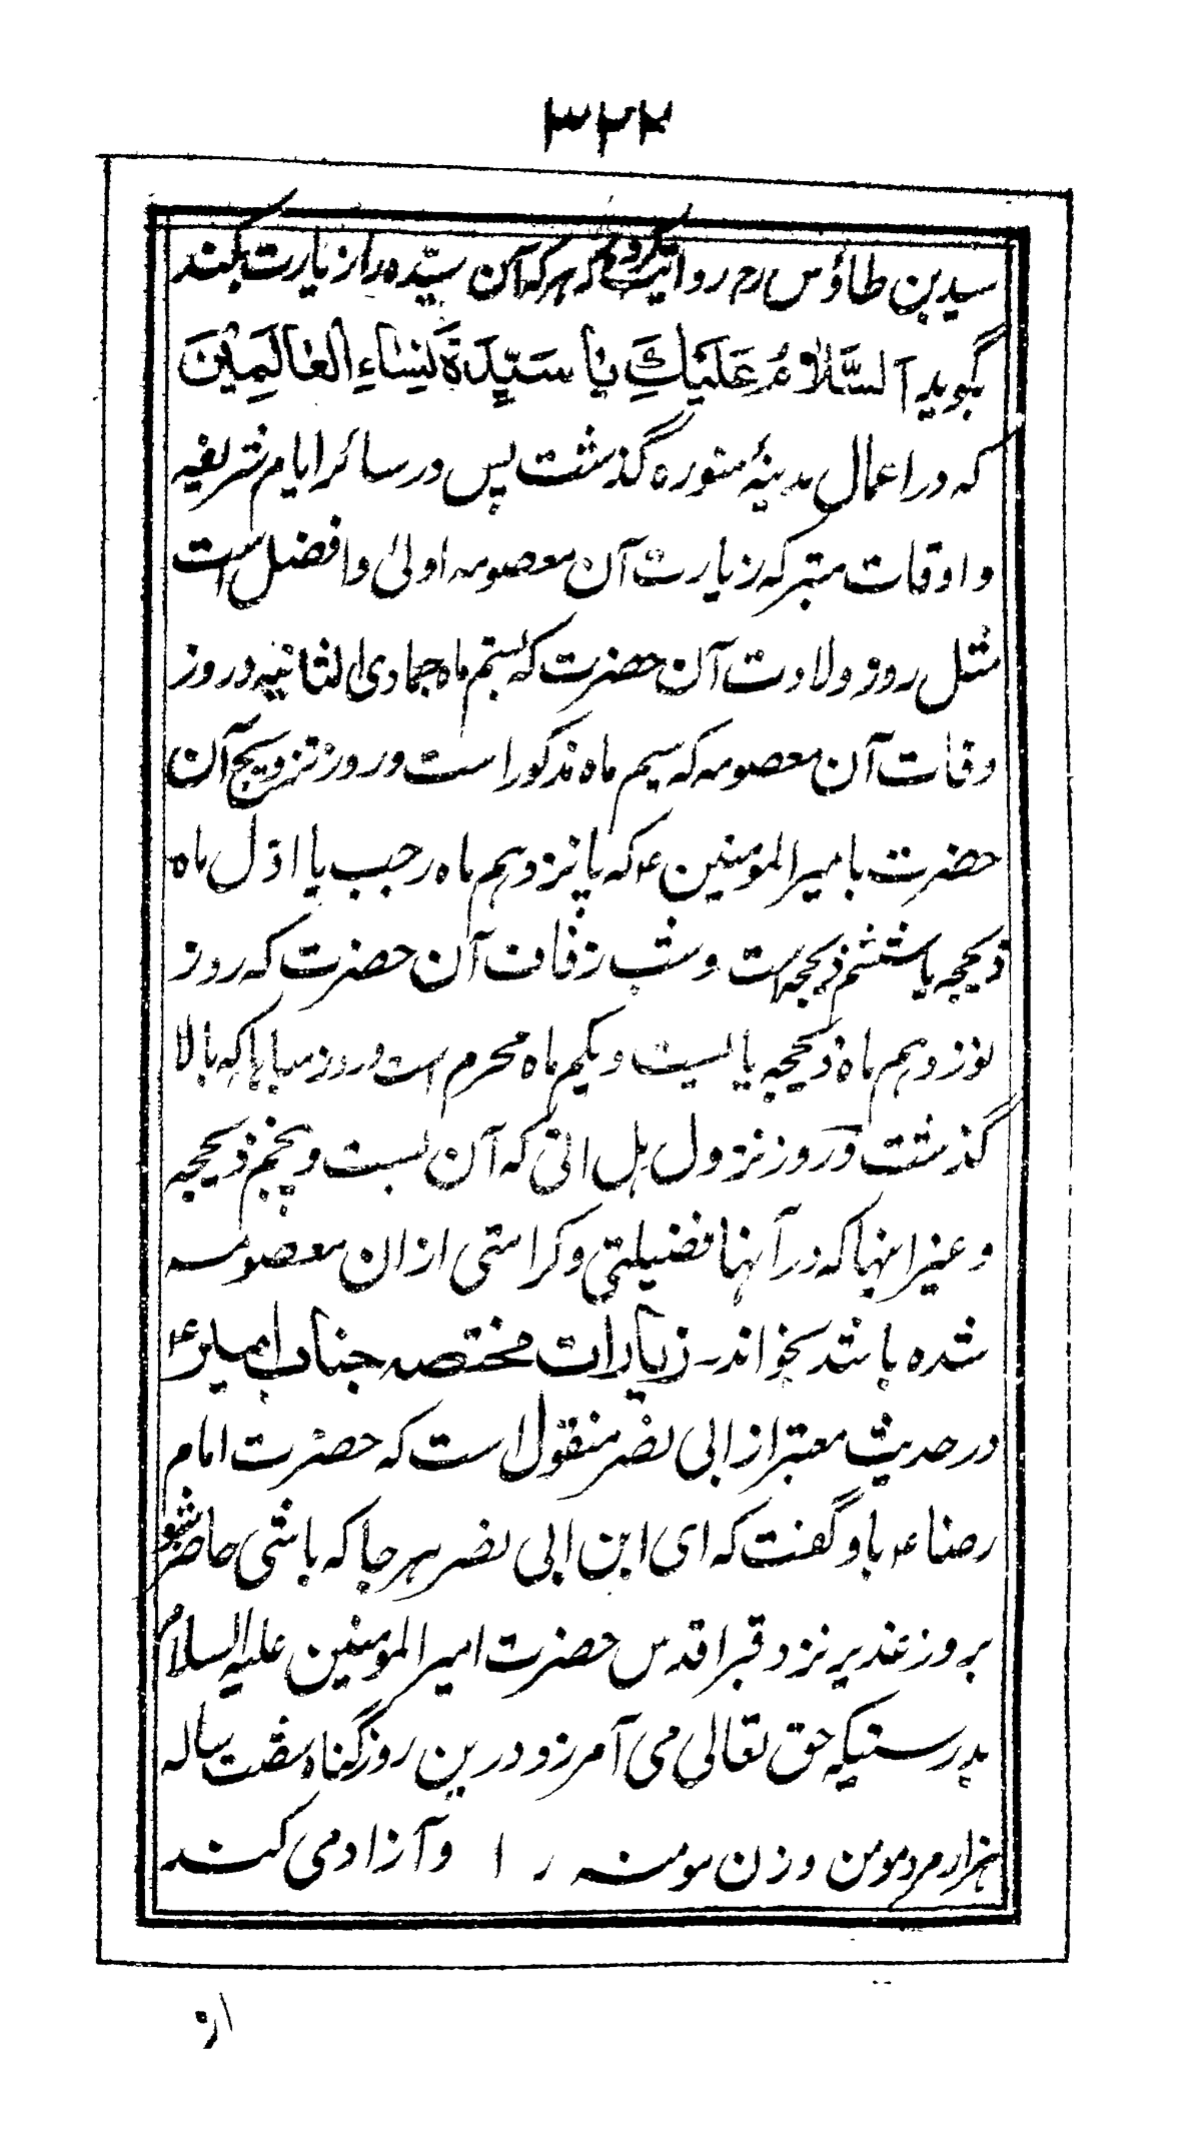 ۳۲۲
سید بن طاؤس رہ روایت کرده که هر که آن سیّده را زیارت بکند
بگوید اَلسَّلَامُ عَلَیْكِ یَا سَیِّدَةَ نِسَاءِ الْعَالَمِیْنَ
که در اعمال مدینهٔ منوره گذشت پس در سائر ایام شریفه
و اوقات متبرکه زیارت آن معصومه اولیٰ و افضل است
مثل روز ولادت آن حضرت که بستم ماه جمادی الثانیه و روز
وفات آن معصومه که سیم ماه مذکور است و روز تزویج آن
حضرت بامیر المومنین ع که پانزدهم ماه رجب یا اوّل ماه
ذیحجه یا ششم ذیحجه است و شب زفاف آن حضرت که روز
نوزدهم ماه ذیحجه یا بیست و یکم ماه محرم است و روز مباہله که بالا
گذشت و روز نزول هل اتی که آن بست و پنجم ذیحجه
و غیر اینها که در آنها فضیلتی و کرامتی از ان معصومه
شده باشد بخواند ـ زیارات مختصه جناب امیر ع
در حدیث معتبر از ابی نصر منقول است که حضرت امام
رضا ع باو گفت که ای ابن ابی نصر هر جا که باشی حاضر شو
بروز غدیر نزد قبر اقدس حضرت امیر المومنین علیه السلام
بدرستیکه حق تعالی می آمرزد درین روز گناه شصت ساله
هزار مرد مومن و زن مومنه را و آزاد می کند
از